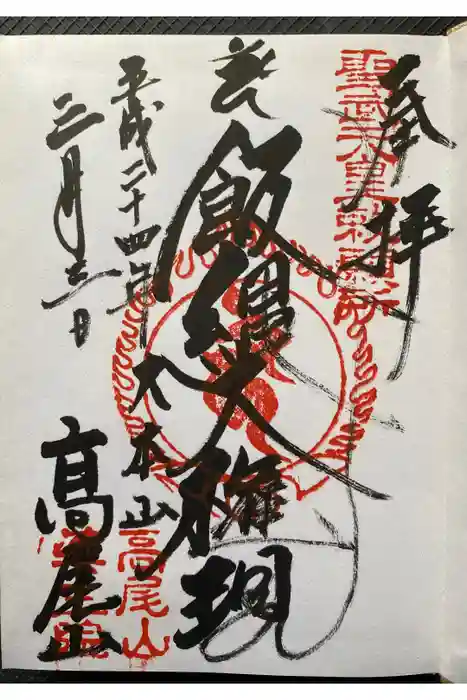 奉拝
聖武天皇勅願所
飯縄大権現
平成二十四年
三月三日
大本山
高尾山
高尾山